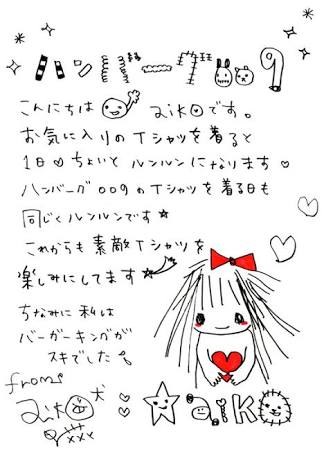 ハンバーグ009
こんにちは aikoです。
お気に入りのTシャツを着ると
1日♡ちょいとルンルンになります♡
ハンバーグ009のTシャツを着る日も
同じくルンルンです☆
これからも素敵Tシャツを
楽しみにしてます☆
ちなみに私は
バーガーキングが
スキでした。
from
aiko ☆aiko